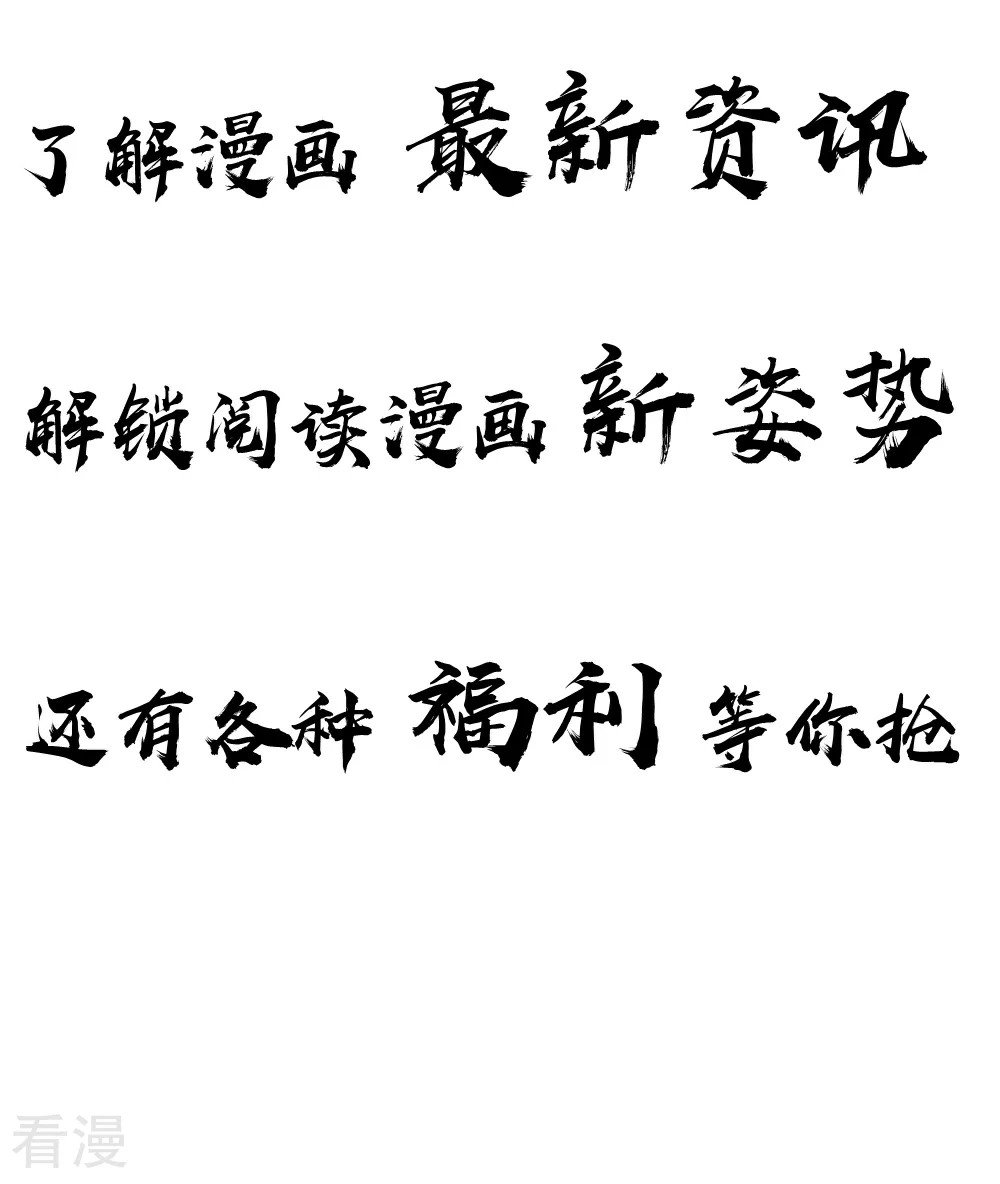 了解漫画 最新资讯
解锁阅读漫画 新姿势
还有各种 福利 等你抢
看漫